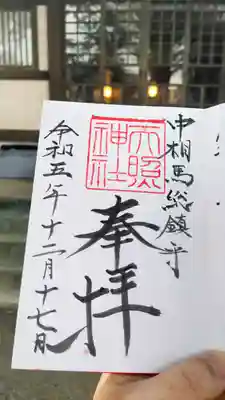 中相馬総鎮守
大照神社
奉拝
令和五年十二月十七日